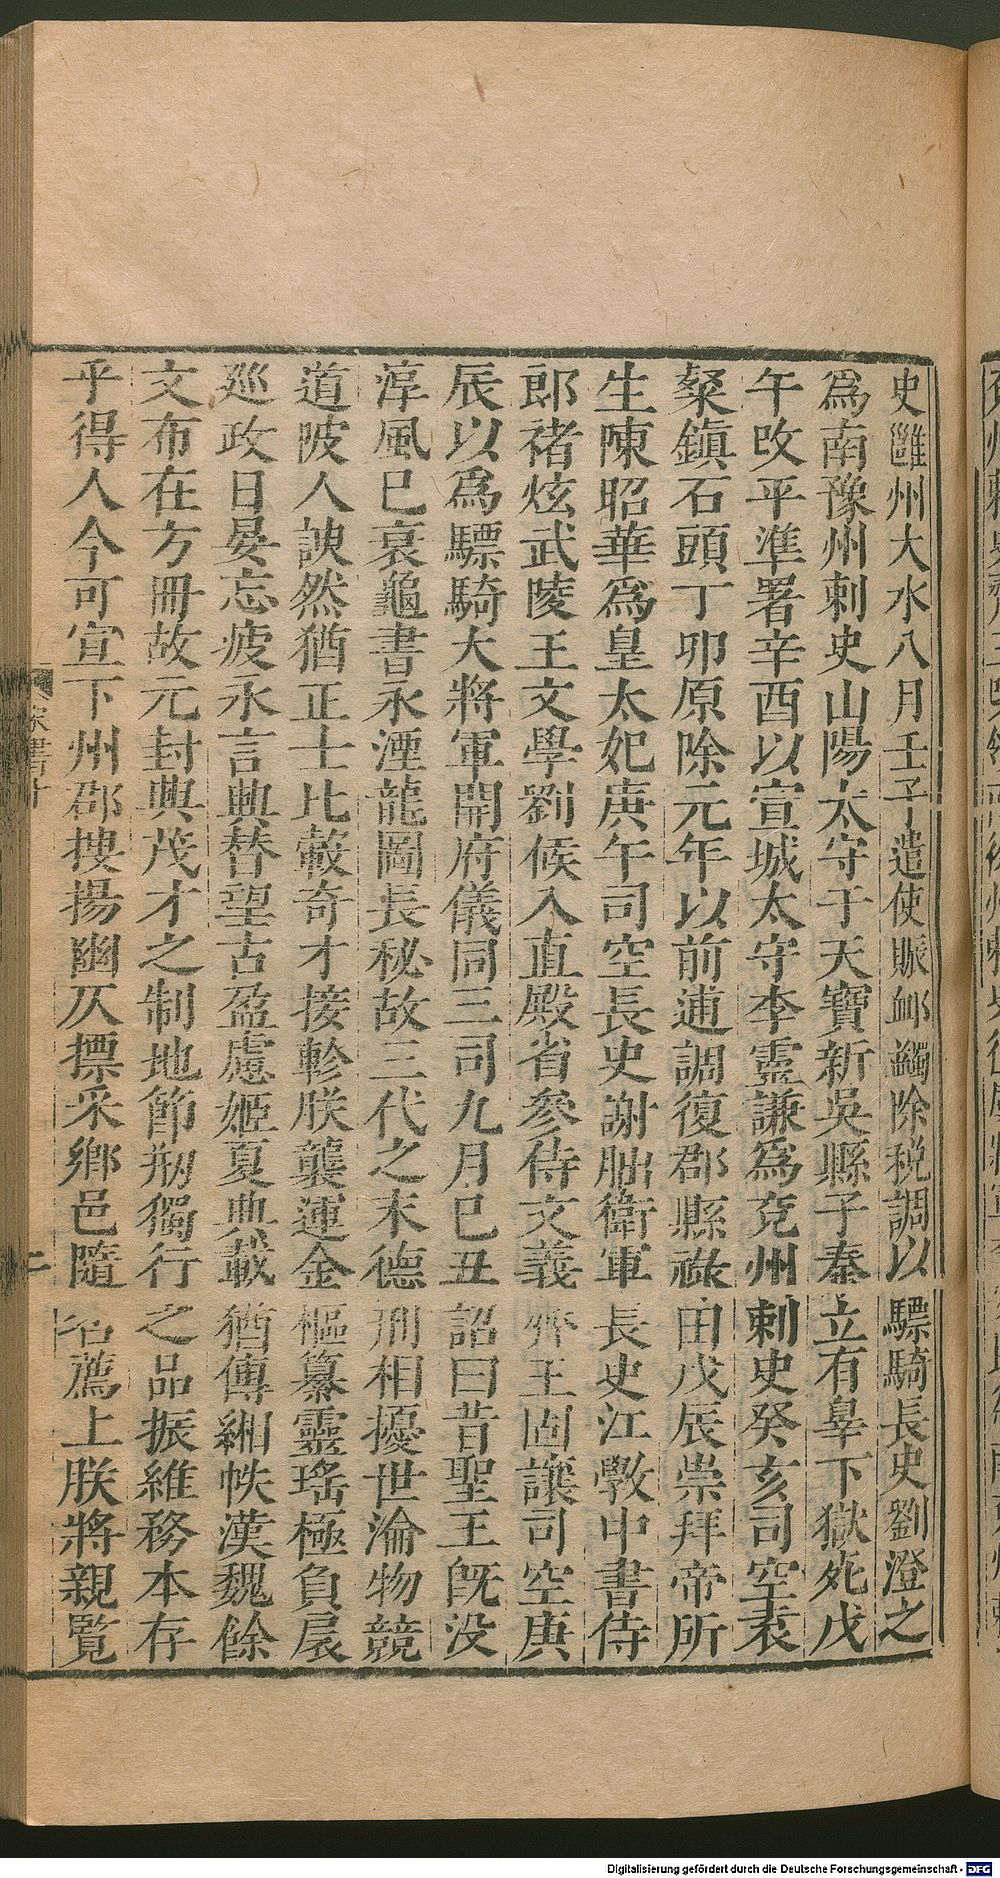 史雝州大水八月壬子遣使賑䘏蠲除税調以驃騎長史劉澄之
爲南豫州刺史山陽太守于天寶新吳縣子秦立有辠下獄死戊
午改平準署辛酉以宣城太守李靈謙爲兗州刺史癸亥司空袁
粲鎮石頭丁卯原除元年以前逋調復郡縣祿田戊辰崇拜帝所
生陳昭華爲皇太妃庚午司空長史謝朏衛軍長史江斆中書侍
郎褚炫武陵王文學劉候入直殿省參侍文義齊王固讓司空庚
辰以爲驃騎大將軍開府儀同三司九月巳丑詔曰昔聖王旣沒
淳風巳衰龜書永湮龍圖長秘故三代之末德刑相擾世淪物競
道陂人諛然猶正士比轂奇才接軫朕襲運金樞纂靈瑤極負扆
巡政日晏忘疲永言興替望古盈慮姬夏典載猶傳緗帙漢魏餘
文布在方冊故元封興茂才之制地節剏獨行之品振維務本存
乎得人今可宣下州郡搜揚幽仄摽采鄉邑隨名薦上朕將親覽
宋書十
二
Digitalisierung gefördert durch die Deutsche Forschungsgemeinschaft - DFG